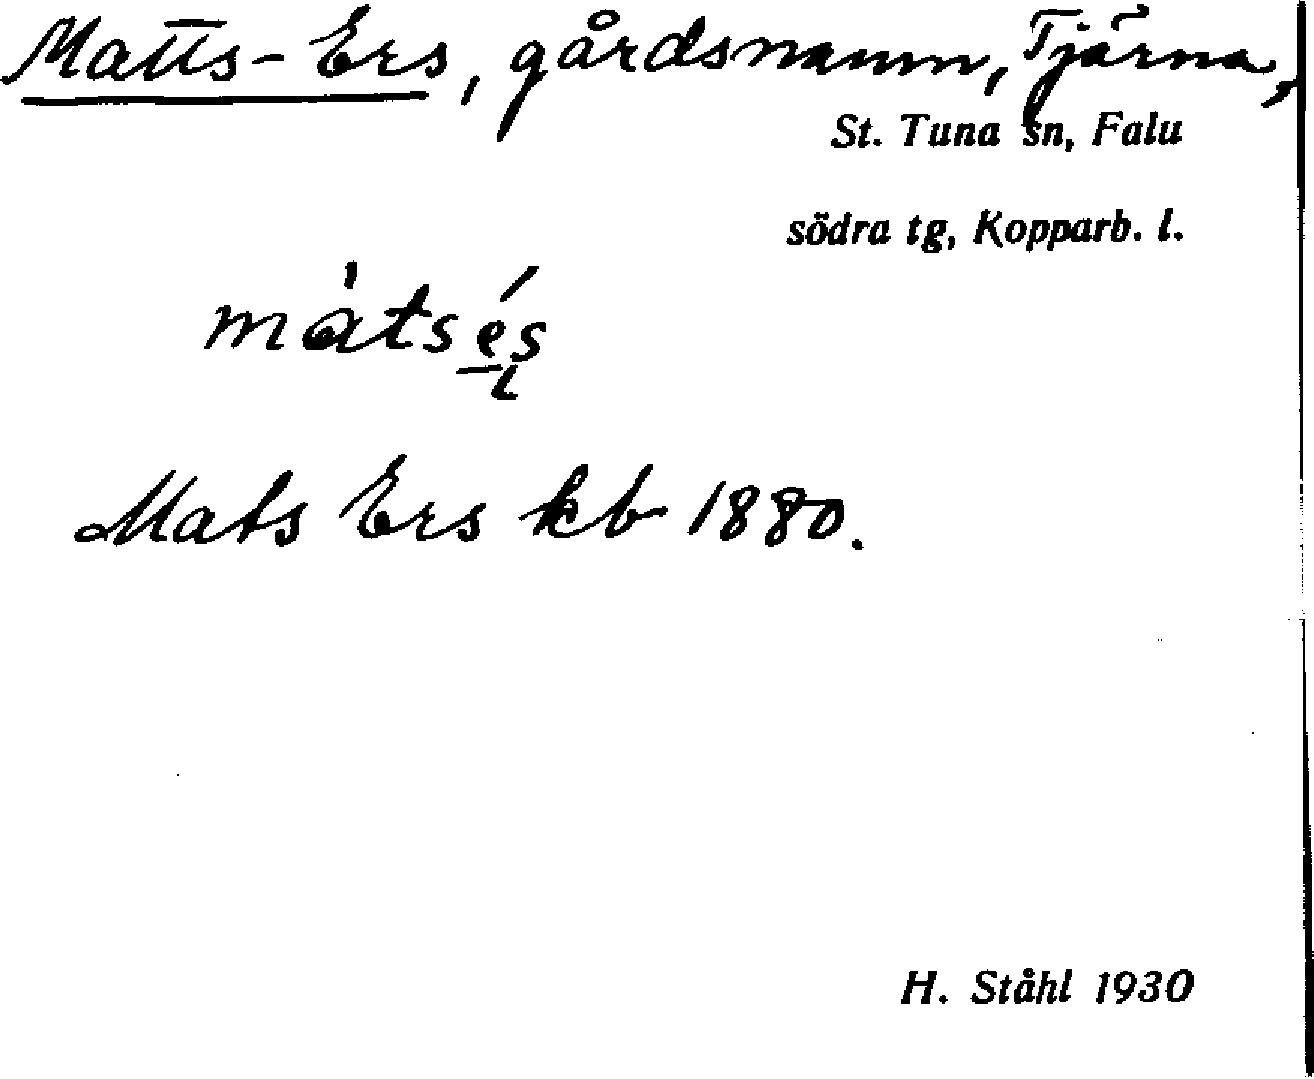 Matts-Ers, gårdsnamn, Tjärna,
St. Tuna sn, Falu
södra tg, Kopparb. l.
Mats Ers kb 1880.
H. Ståhl 1930